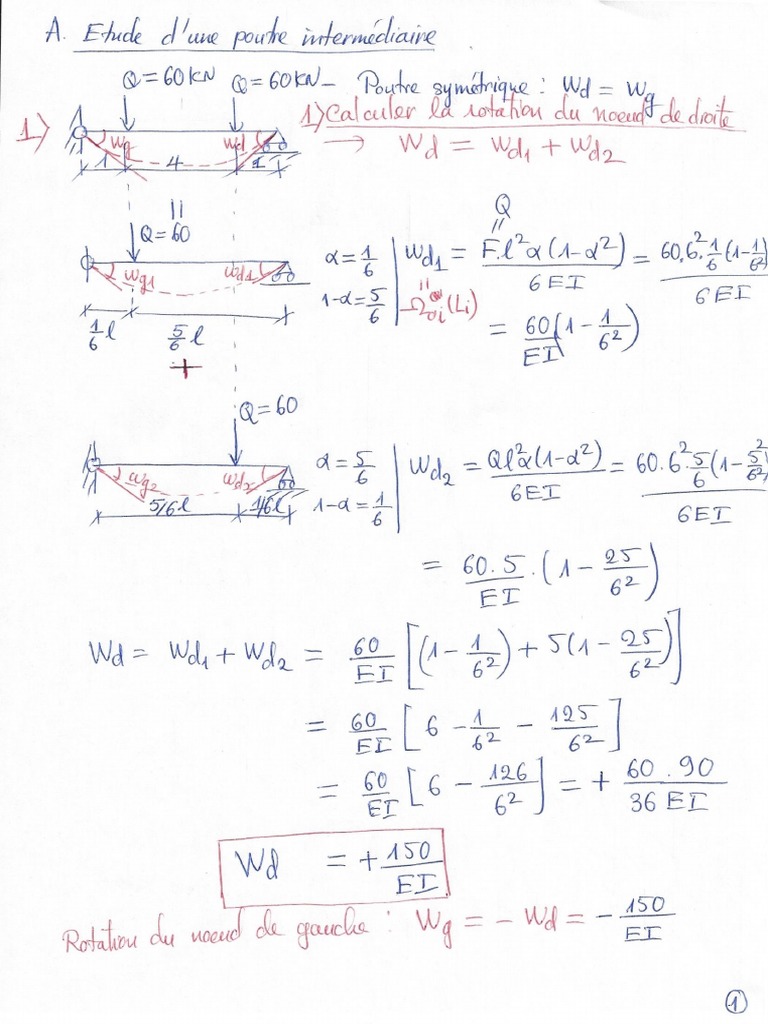 A. Etude d'une poutre intermédiaire
Q=60KN Q=60KN - Poutre symétrique : Wd = Wg
1) 1) Calculer la rotation du noeud de droite
wg wd
1 4 1
→ Wd = Wd1 + Wd2
= Q=60
wg1 wd1
1/6 l 5/6 l
α=1/6
1-α=5/6
Q
=
Wd1 = F.l²α(1-α²)/6EI = 60.6².1/6(1-1/6²)/6EI
= Ωoi(Li)
= 60/EI (1-1/6²)
+
Q=60
wg2 wd2
5/6 l 1/6 l
α=5/6
1-α=1/6
Wd2 = Ql²α(1-α²)/6EI = 60.6².5/6(1-5²/6²)/6EI
= 60.5/EI . (1 - 25/6²)
Wd = Wd1 + Wd2 = 60/EI [(1 - 1/6²) + 5(1 - 25/6²)]
= 60/EI [6 - 1/6² - 125/6²]
= 60/EI [6 - 126/6²] = + 60.90/36 EI
Wd = + 150/EI
Rotation du noeud de gauche : Wg = - Wd = - 150/EI
1